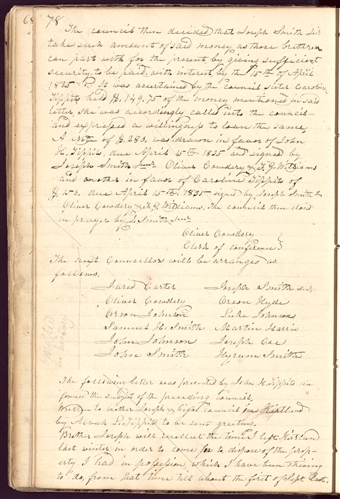 78
The council then decided that Joseph Smith Jr.
take such amount of said money as those brethren
can part with for the present, by giving sufficient
security, to be paid, with interest by the 15th of April
1835. It was ascertained by the council Sister Caroline
Tippits held $149.75 of the money mentioned in said
letter she was accordingly called into the council
and expressed a willingness to loan the same.
A Note of $280. was drawn in favor of John
H. Tippits, due April 15th 1835 and signed by
Joseph Smith Junr. Oliver Cowdery & F. G. Williams
and another in favor of Caroline Tippits of
$150. due April 15th 1835 signed by Joseph Smith Jr
Oliver Cowdery & F. G. Williams. The council then closed
in prayer by J. Smith Junr
Oliver Cowdery
Clerk of conference
The next Councellors will be arranged as
follows.
Jared Carter Joseph Smith
Oliver Cowdery Orson Hyde
Orson Johnson Luke Johnson
Samuel H. Smith Martin Harris
John Johnson Joseph Coe
John Smith Hyrum Smith
The following letter was presented by John H. Tippits as
found the subject of the preceding Council,
Kirtland
Brother Joseph will recollect the time I left Kirtland
last winter in order to come to dispose of the prop-
erty I had in possession, which I have been striving
to do, from that time till about the first of Sept. last.